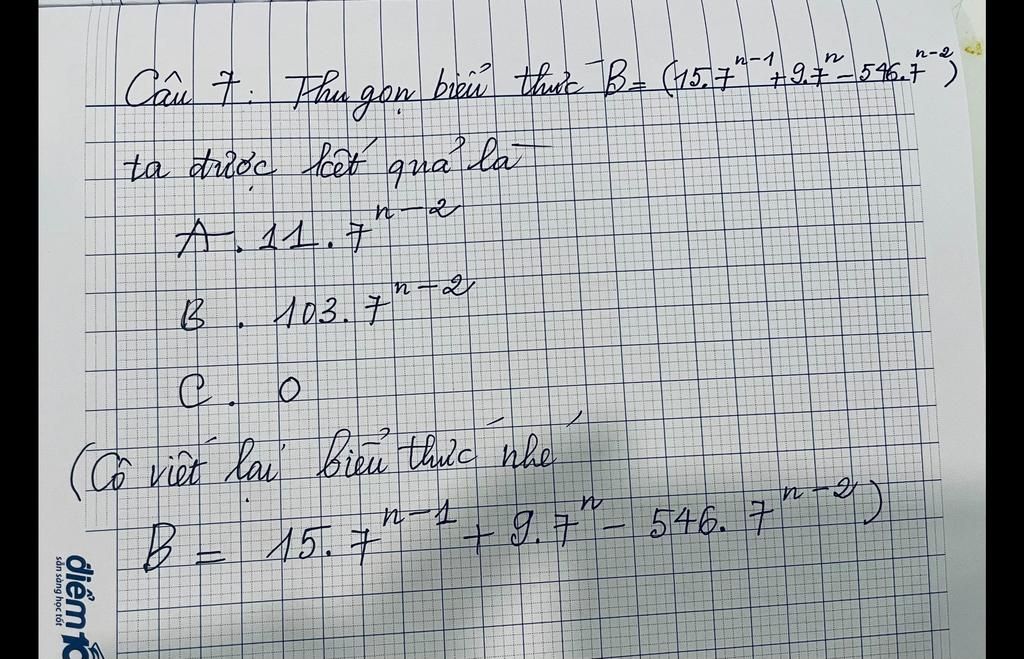 Câu 7: Thu gọn biểu thức B = (15.7^{n-1} + 9.7^{n} - 546.7^{n-2})
ta được kết quả là
A. 11.7^{n-2}
B. 103.7^{n-2}
C. 0
(Cô viết lại biểu thức nhé
B = 15.7^{n-1} + 9.7^{n} - 546.7^{n-2})
điểm 10
sẵn sàng học tốt